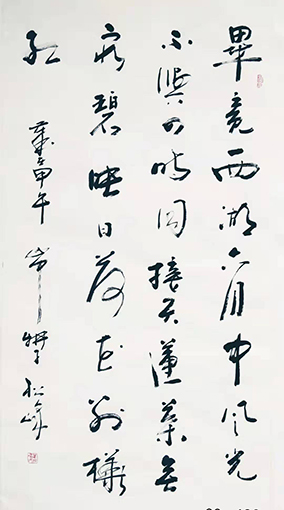 畢竟西湖六月中風光
不與四時同接天蓮葉無
窮碧映日荷花別樣
紅 甲午 松峰